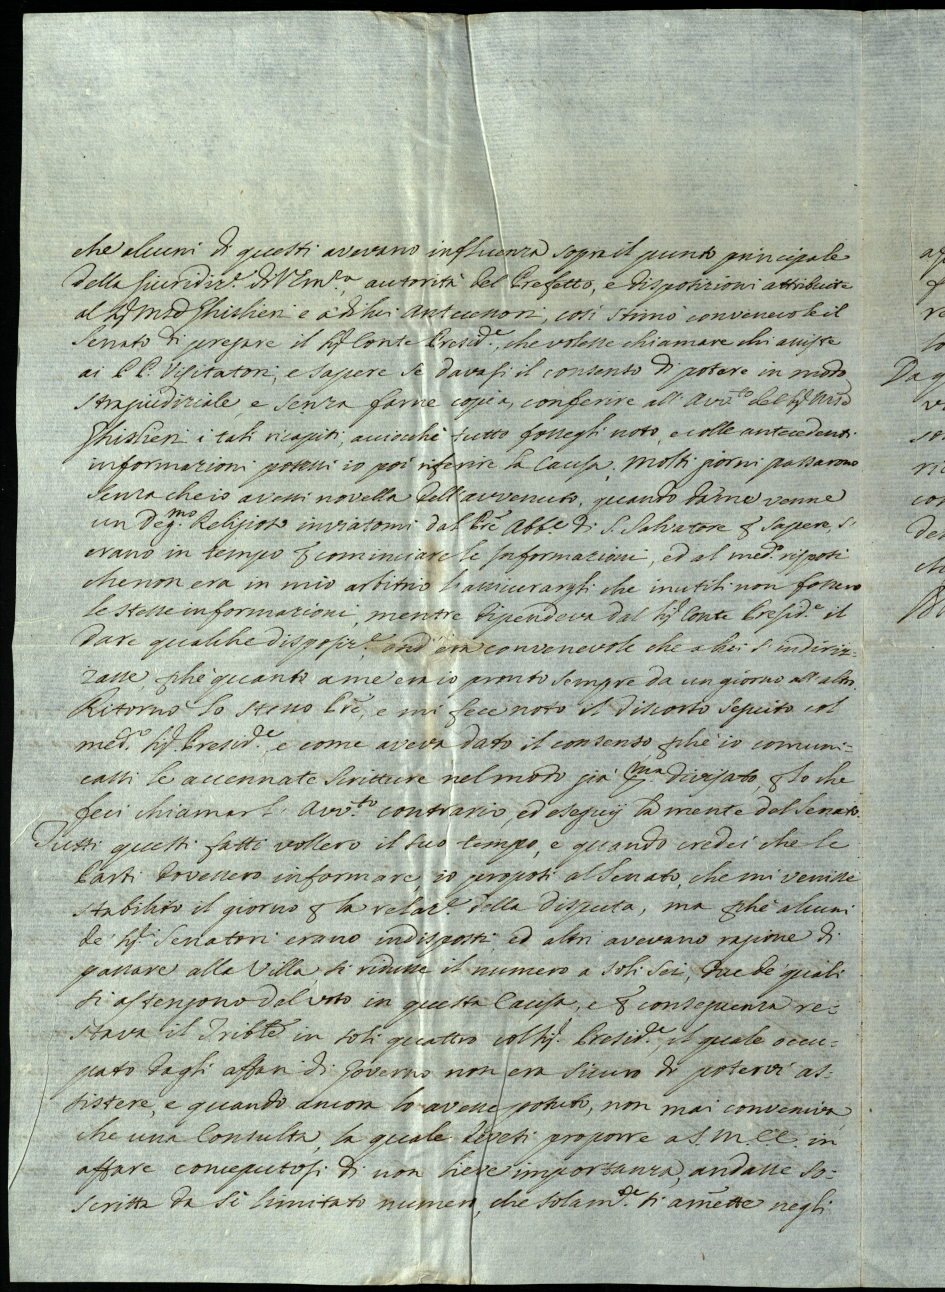 che alcuni di questi avevano influenza sopra il punto principale
della Giurisdiz.e autorità del Prefetto, e disposizioni attribuite
al Sig.r M.se Ghislieri e a di lui Antecenori, così stimò convenevole il
Senato di pregare il Sig.r Conte Presid.e, che volesse chiamare chi assiste
ai PP. Visitatori, e sapere se davasi il consenso di potere in modo
strajudiziale, e senza farne copia, conferire all'Avv.to del Sig.r M.se
Ghislieri i tali ricapiti, acciochè tutto fossegli noto, e colle antecedenti
informazioni potessi io poi riferire la Causa. Molti giorni passarono
senza che io avessi novella dell'avvenuto, quando da me venne
un Deg.mo Religioso inviatomi dal Pre Abb.e di S. Salvatore p sapere, s'
erano in tempo p cominciare le Informazioni, ed al med.o risposi
che non era in mio arbitrio l'assicurargli che inutili non fossero
le stesse informazioni, mentre dipendeva dal Sig.r Conte Presid.e il
dare qualche disposiz.e, ond'era convenevole che a lui s'indiriz-
zasse, pchè quanto a me ero io pronto sempre da un giorno all'altro.
Ritornò lo stesso Pre, e mi fece noto il discorso seguito col
med.o Sig.r Presid.e, e come aveva dato il consenso pchè io comuni-
cassi le accennate Scritture nel modo già p.ma divisato, p lo che
feci chiamar l'Avv.to contrario, ed eseguij la mente del Senato.
Tutti questi fatti vollero il suo tempo, e quando credei che le
Parti dovessero informare, io proposi al Senato, che mi venisse
stabilito il giorno p la relaz.e della disputa, ma pchè alcuni
de' Sig.ri Senatori erano indisposti, ed altri avevano ragione di
passare alla Villa si ridusse il numero a soli sei, due de' quali
si astengono dal voto in questa Causa, e p conseguenza re-
stava il Trible in soli quattro col Sig.r Presid.e, il quale occu-
pato dagli affari di Governo non era sicuro di potervi as-
sistere, e quando ancora lo avesse potuto, non mai conveniva
che una Consulta, la quale devesi proporre a S.M.CC. in
affare conceputosi di non lieve importanza, andasse so-
scritta da sì limitato numero, che solam.te si amette negli